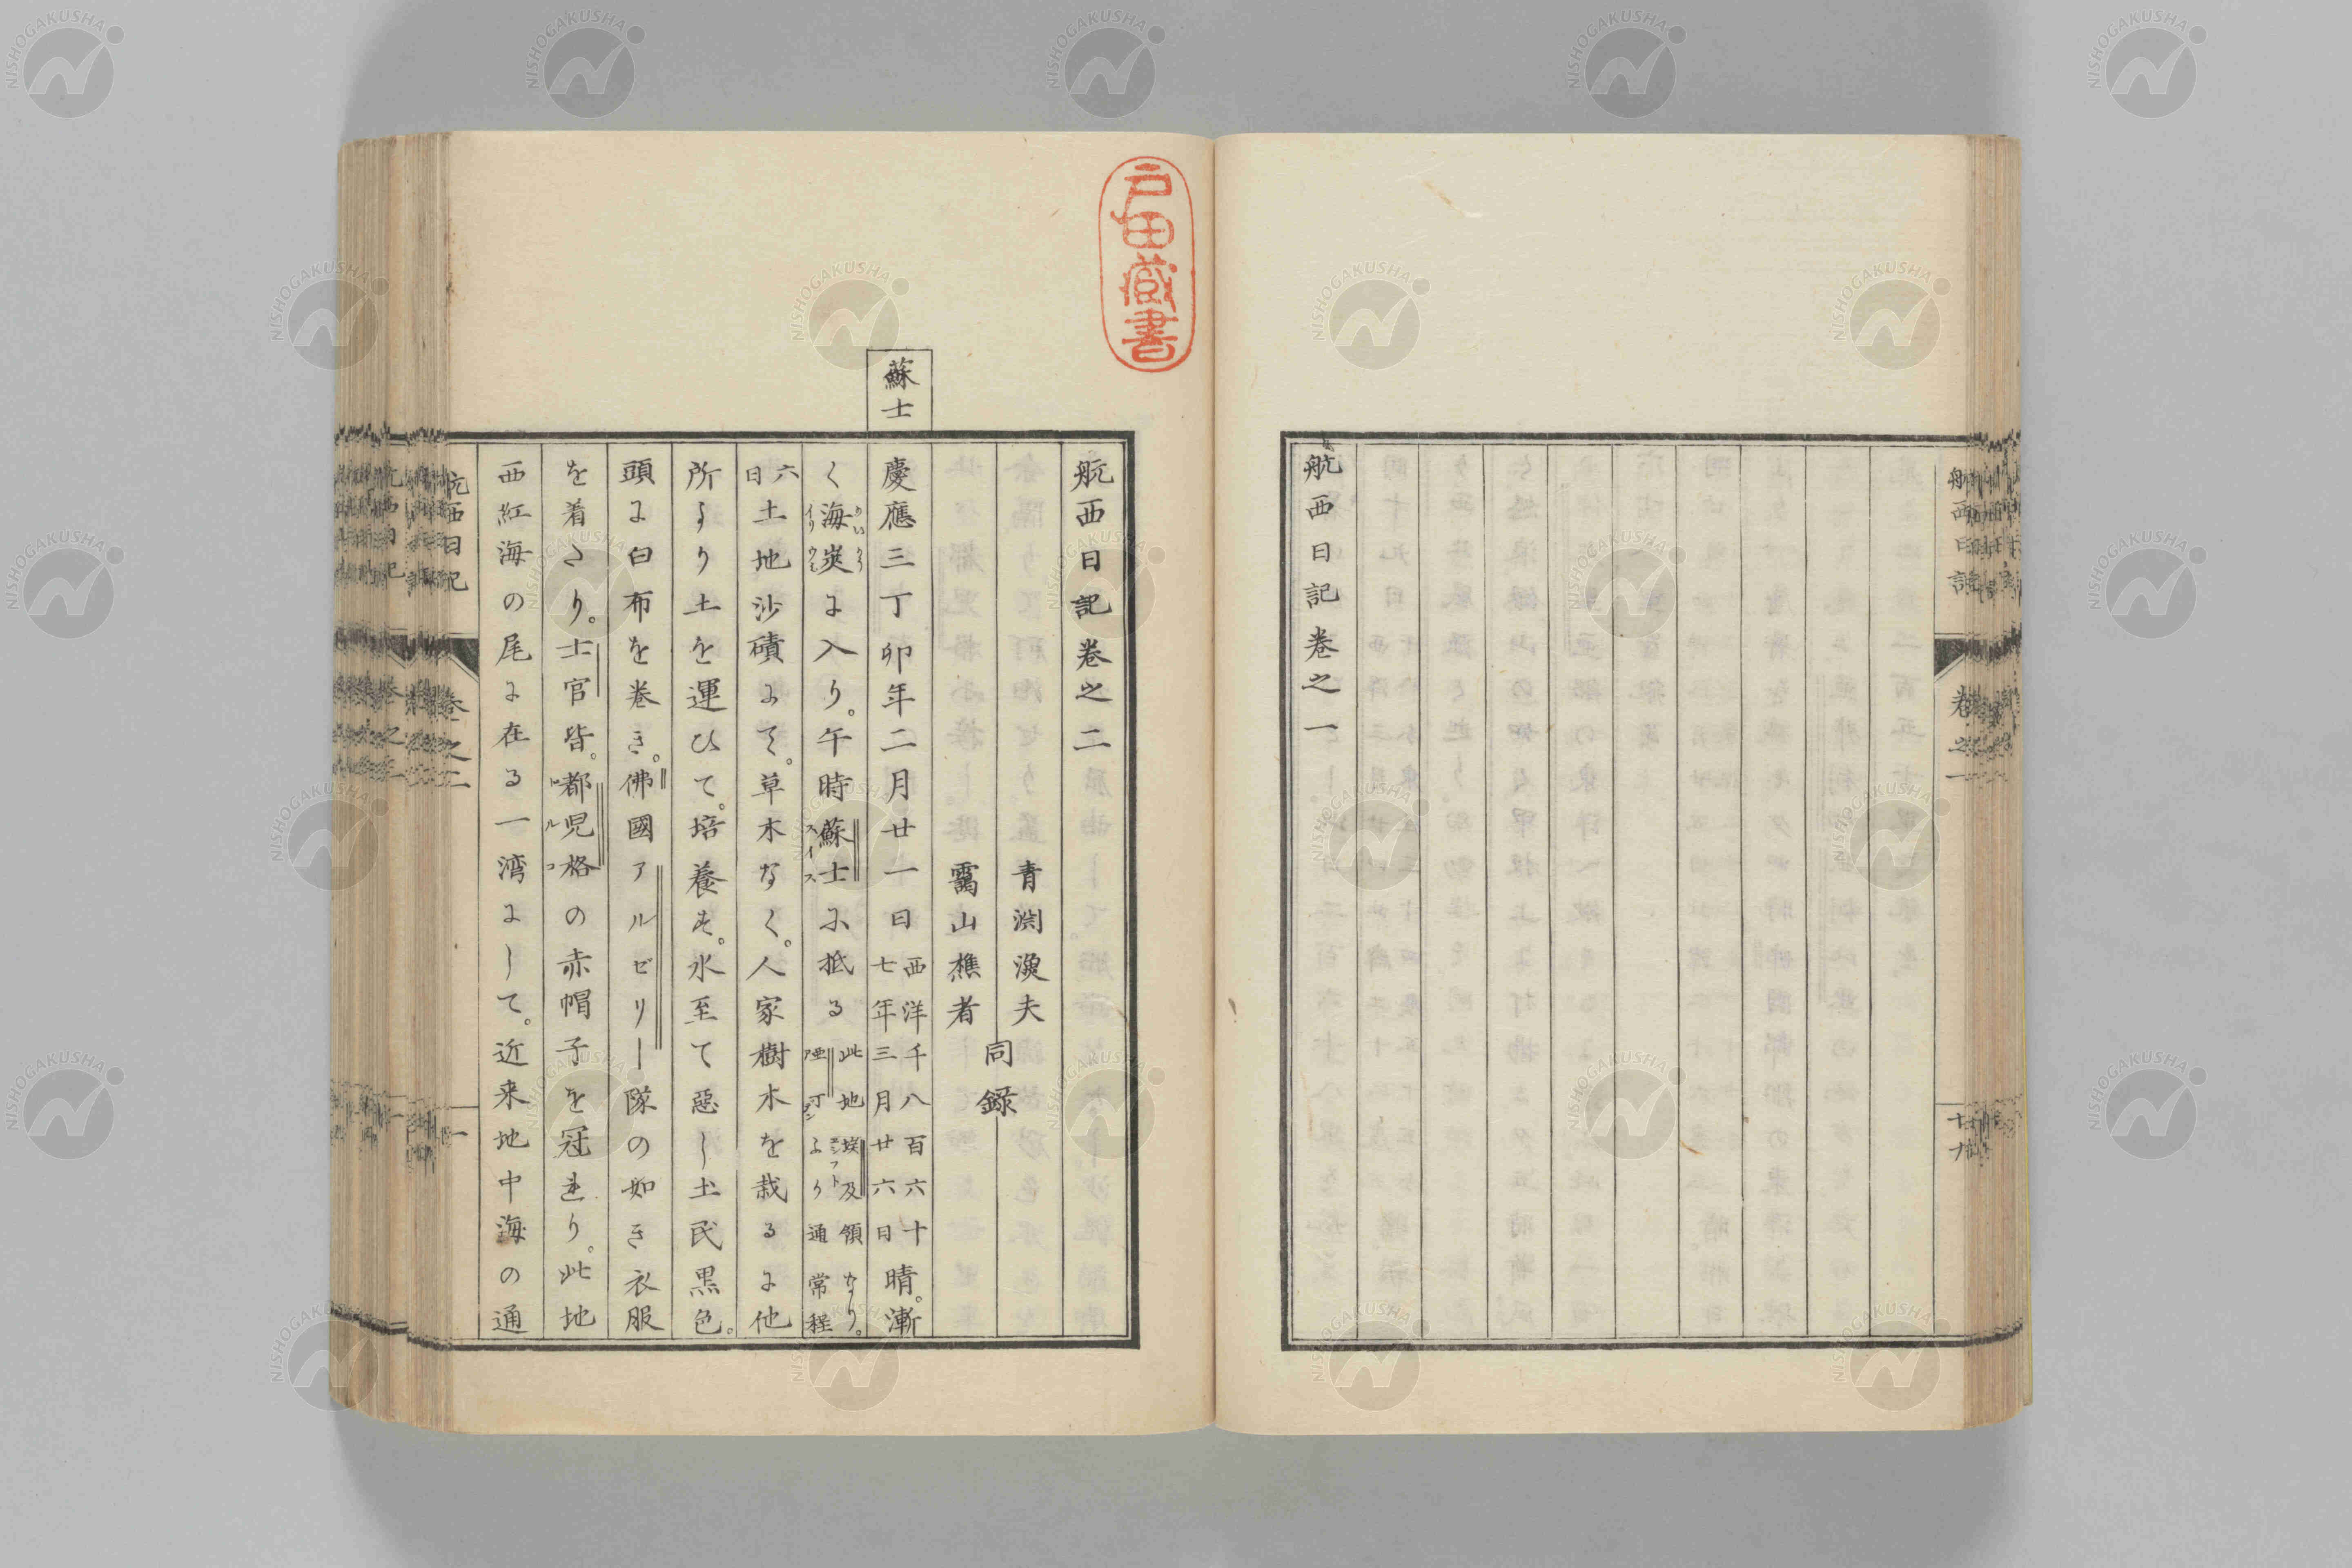 航西日記卷之一
航西日記
卷之一
十九
戸田藏書
蘇士
航西日記卷之二
青淵漁夫
靄山樵者
同録
慶應三丁卯年二月廿一日西洋千八百六十七年三月廿六日晴。漸
く海峽に入り。午時蘇士に抵る此地埃及領なり。亜丁より通常程
六日土地沙磧にて。草木なく。人家樹木を栽るに他
所より土を運ひて。培養す。水至て惡し土民黒色。
頭に白布を卷き。佛國アルゼリー隊の如き衣服
を着たり。士官皆。都児格の赤帽子を冠れり。此地
西紅海の尾に在る一湾にして。近来地中海の通
航西日記
卷之二
一
NISHOGAKUSHA